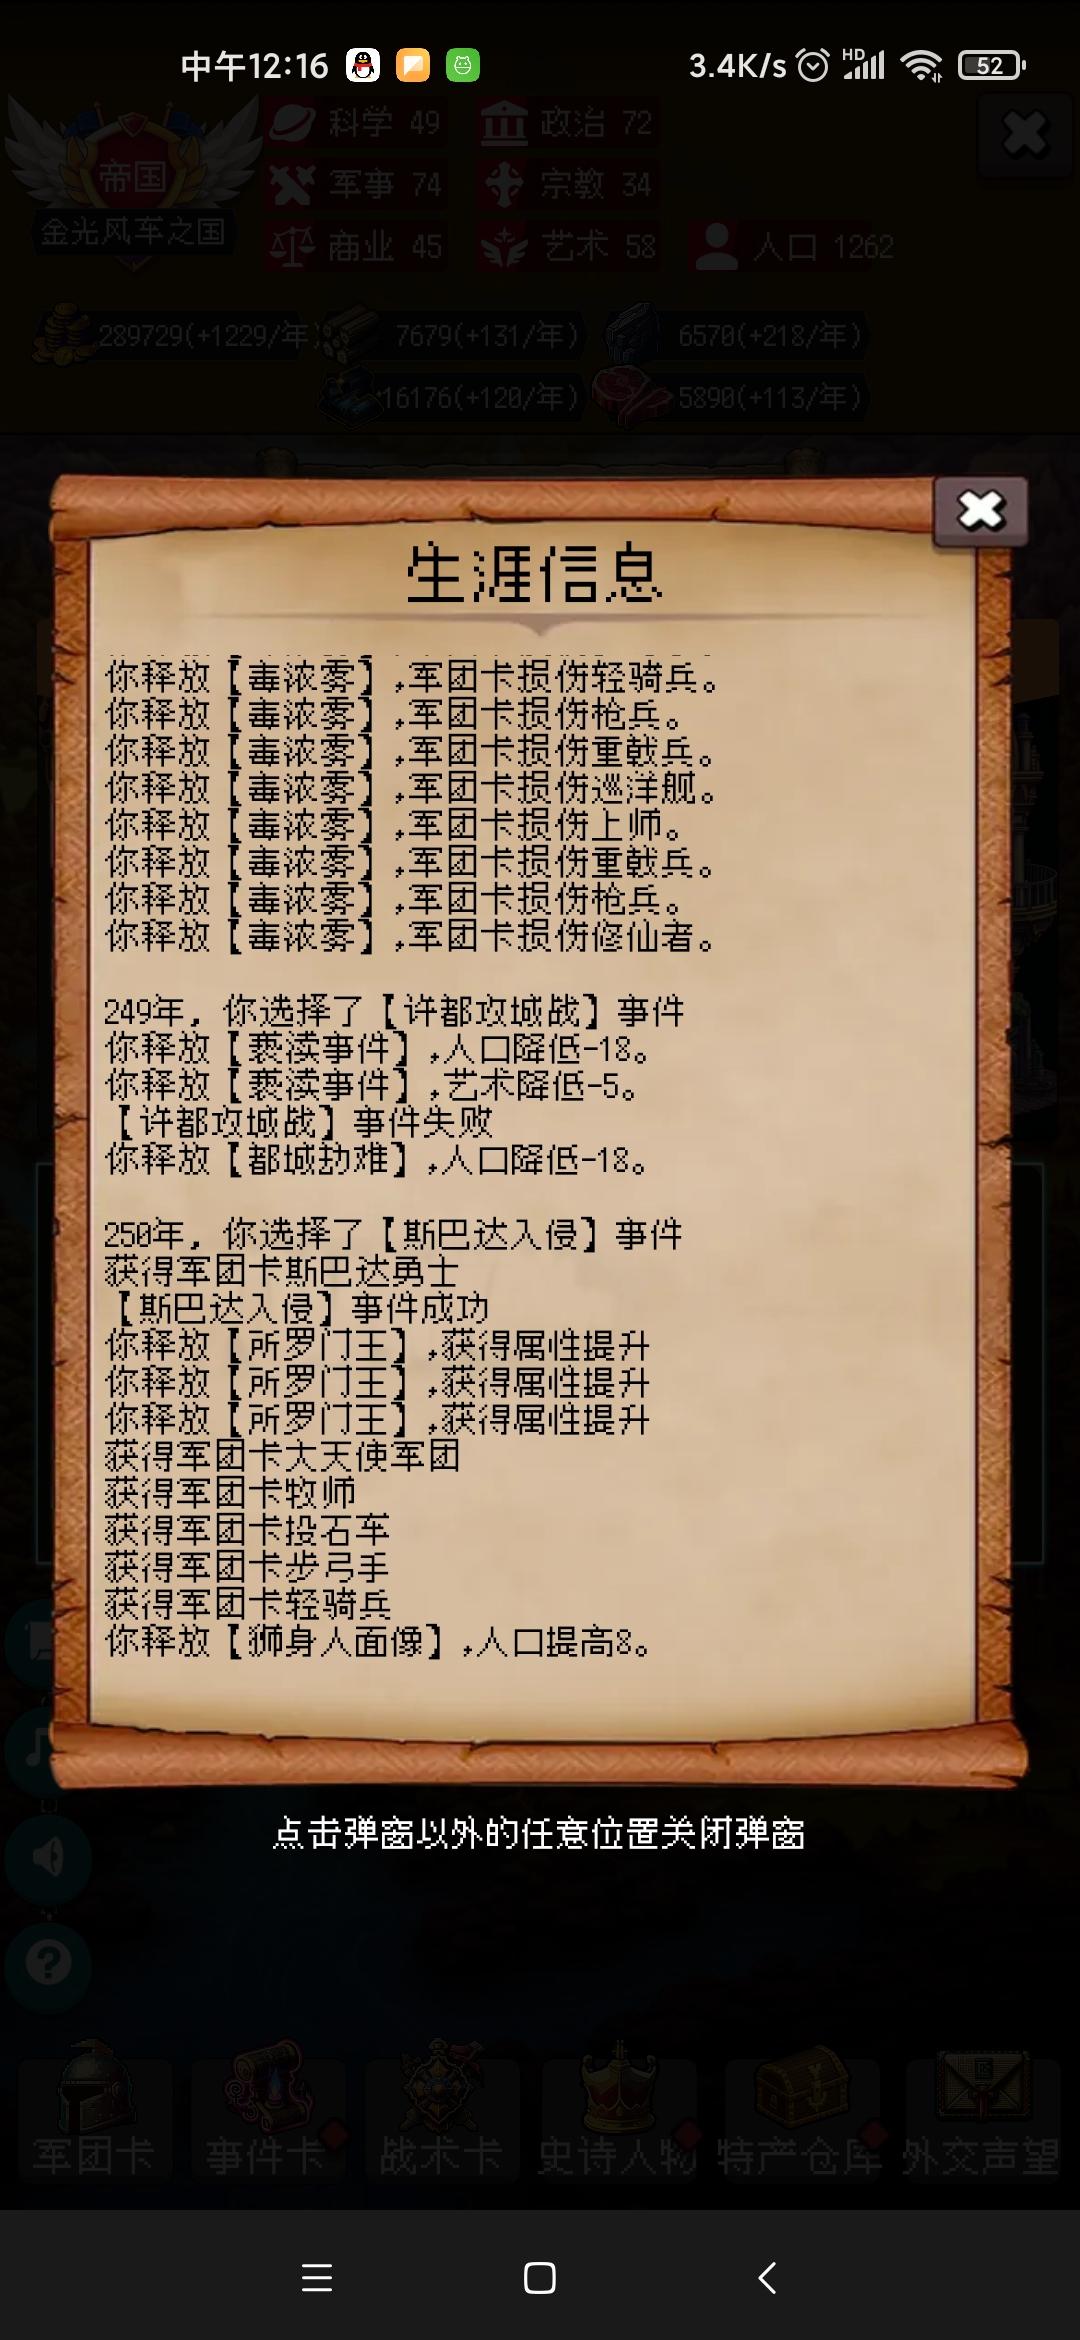 中午12:16
3.4K/s
HD
52
帝国
金光风车之国
科学 49
政治 72
军事 74
宗教 34
商业 45
艺术 58
人口 1262
289729(+1229/年)
7679(+131/年)
6570(+218/年)
16176(+120/年)
5890(+113/年)
生涯信息
你释放【毒浓雾】,军团卡损伤轻骑兵。
你释放【毒浓雾】,军团卡损伤枪兵。
你释放【毒浓雾】,军团卡损伤重戟兵。
你释放【毒浓雾】,军团卡损伤巡洋舰。
你释放【毒浓雾】,军团卡损伤上师。
你释放【毒浓雾】,军团卡损伤重戟兵。
你释放【毒浓雾】,军团卡损伤枪兵。
你释放【毒浓雾】,军团卡损伤修仙者。
249年, 你选择了【许都攻城战】事件
你释放【亵渎事件】,人口降低-18。
你释放【亵渎事件】,艺术降低-5。
【许都攻城战】事件失败
你释放【都城劫难】,人口降低-18。
250年, 你选择了【斯巴达入侵】事件
获得军团卡斯巴达勇士
【斯巴达入侵】事件成功
你释放【所罗门王】,获得属性提升
你释放【所罗门王】,获得属性提升
你释放【所罗门王】,获得属性提升
获得军团卡大天使军团
获得军团卡牧师
获得军团卡投石车
获得军团卡步弓手
获得军团卡轻骑兵
你释放【狮身人面像】,人口提高8。
点击弹窗以外的任意位置关闭弹窗
军团卡
事件卡
战术卡
史诗人物
特产仓库
外交声望